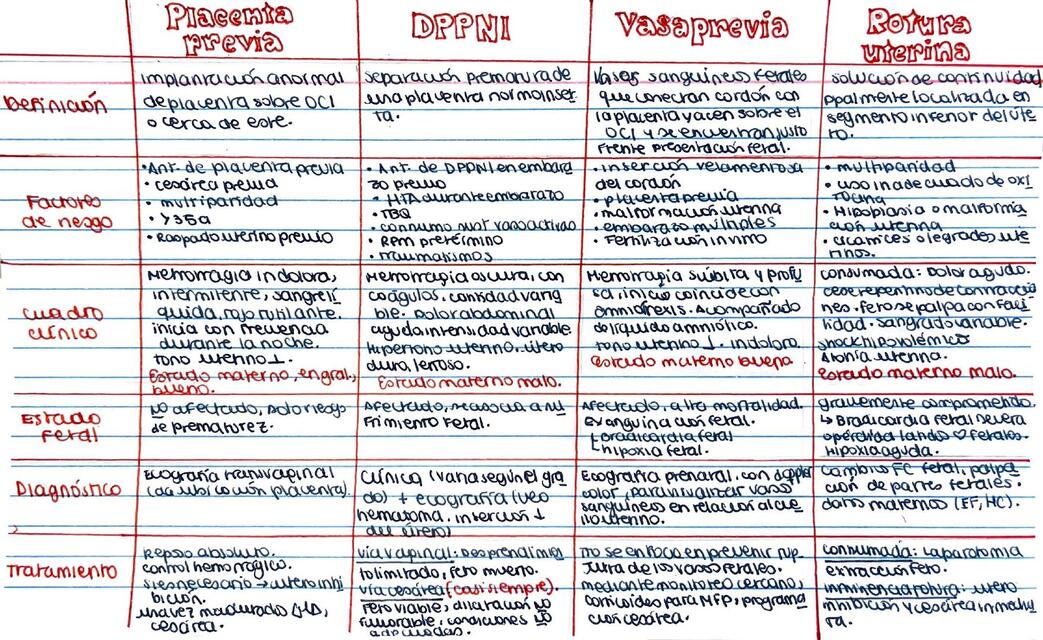 Placenta previa
DPPNI
Vasa previa
Rotura uterina
Definición
implantación anormal
de placenta sobre OCI
o cerca de este.
separación prematura de
una placenta normoinser
ta.
Vasos sanguíneos fetales
que conectan cordón con
la placenta yacen sobre el
OCI y se encuentran justo
frente presentación fetal.
solución de continuidad
ppalmente localizada en
segmento inferior del úte
ro.
Factores de riesgo
• Ant. de placenta previa
• cesárea previa
• multiparidad
• >35a
• Raspado uterino previo
• Ant. de DPPNI en embara
zo previo
• HTA durante embarazo
• TBQ
• consumo sust vasoactivas
• Rem pretérmino
• Traumatismos
• inserción velamentosa
del cordón
• placenta previa
• malformación uterina
• embarazo múltiples
• Fertilización invitro
• multiparidad
• uso inadecuado de oxi
tocina
• Hipoplasia o malforma
ción uterina
• cicatrices o legrados ute
rinos.
Cuadro clínico
Hemorragia indolora,
intermitente, sangre lí
quida, rojo rutilante.
inicia con frecuencia
durante la noche.
tono uterino ⊥.
Estado materno, en gral,
bueno.
Hemorragia oscura, con
coágulos. cantidad varia
ble. Dolor abdominal
agudo, intensidad variable.
Hipertono uterino. útero
dura, leñoso.
Estado materno malo.
Hemorragia súbita y profu
sa, inicio coincide con
amniorexis. Acompañado
de líquido amniótico.
tono uterino ⊥. indoloro.
Estado materno bueno
consumada: Dolor agudo.
cese repentino de contraccio
nes. feto se palpa con faci
lidad. sangrado variable.
shock hipovolémico
Atonía uterina.
Estado materno malo.
Estado fetal
No afectado, solo riesgo
de prematurez.
Afectado, se asocia a su
frimiento fetal.
Afectado, alta mortalidad.
Exanguinación fetal.
↳ bradicardia fetal
hipoxia fetal.
gravemente comprometido.
↳ Bradicardia fetal severa
o pérdida latidos ♡ fetales.
Hipoxia aguda.
Diagnóstico
Ecografía transvaginal
(da ubicación placenta).
Clínica (varía según el gra
do) + ecografía (veo
hematoma. inserción ⊥
del útero)
Ecografía prenatal, con doppler
color, para visualizar vasos
sanguíneos en relación al cue
llo uterino.
cambios FC fetal, palpa
ción de partes fetales.
datos maternos (EF, HC).
Tratamiento
Reposo absoluto.
control hemorrágico.
si es necesario → útero inhi
bición.
una vez madurados
cesárea.
vía vaginal: Desprendimien
to limitado, feto muerto.
vía cesárea (casi siempre).
Feto viable, dilatación no
favorable, condiciones no
adecuadas.
tto se enfoca en prevenir rup
tura de los vasos fetales.
mediante monitoreo cercano,
corticoides para MFP, programa
ción cesárea.
consumada: Laparotomía
extracción feto.
inminencia rotura: útero
inhibición y cesárea inmedia
ta.